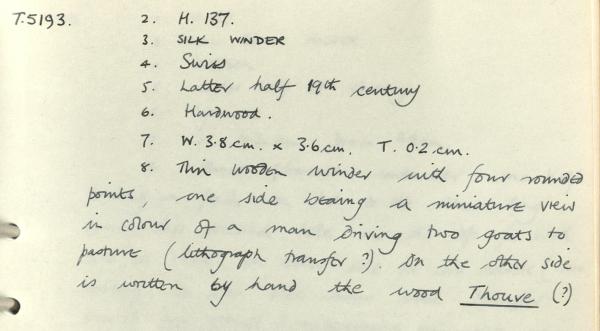 T.5193. 2. H. 137.
3. SILK WINDER
4. Swiss
5. Latter half 19th century
6. Hardwood.
7. W. 3.8 cm. x 3.6 cm. T. 0.2 cm.
8. Thin wooden winder with four rounded
points, one side bearing a miniature view
in colour of a man driving two goats to
pasture (lithograph transfer?). On the other side
is written by hand the wood Thouve (?)